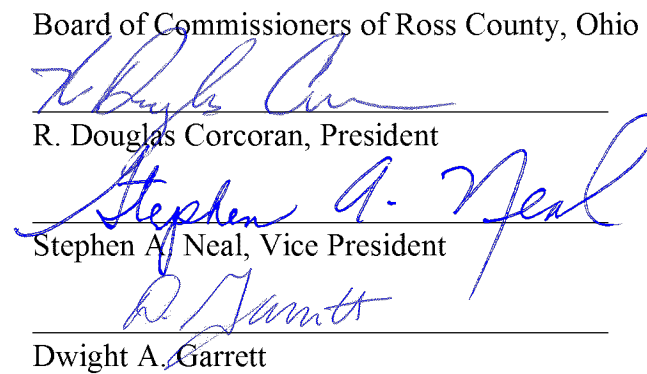 Board of Commissioners of Ross County, Ohio
R Douglas Corcoran
R. Douglas Corcoran, President
Stephen A. Neal
Stephen A. Neal, Vice President
D. Garrett
Dwight A. Garrett